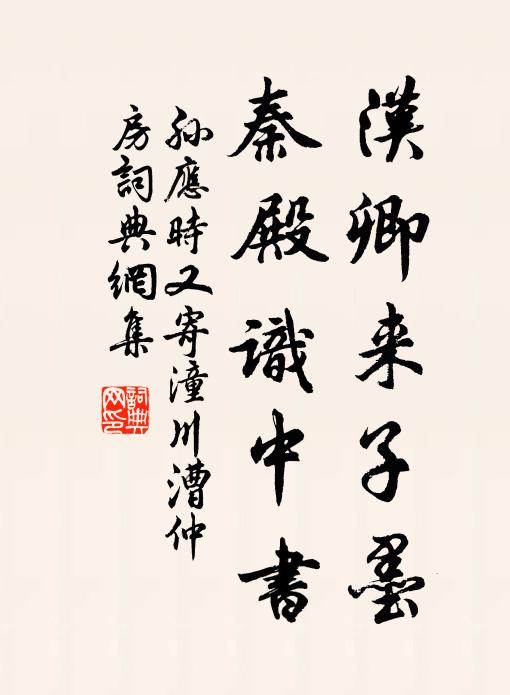 漢卿来子墨
秦殿識中書
孙應時又寄潼川漕仲
房詞典網集
詞典
网印